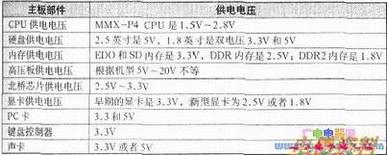 主板部件 供电电压
CPU供电电压 MMX-P4 CPU是1.5V~2.8V
硬盘供电电压 2.5英寸是5V，1.8英寸是双电压3.3V和5V
内存供电电压 EDO和SD内存是3.3V，DDR内存是2.5V；DDR2内存是1.8V
高压板供电电压 根据机型5V~20V不等
北桥芯片供电电压 2.5V~3.3V
显卡供电电压 早期的显卡是3.3V，新型显卡为2.5V或者1.8V
PC卡 3.3和5V
键盘控制器 3.3V
声卡 3.3V或者5V